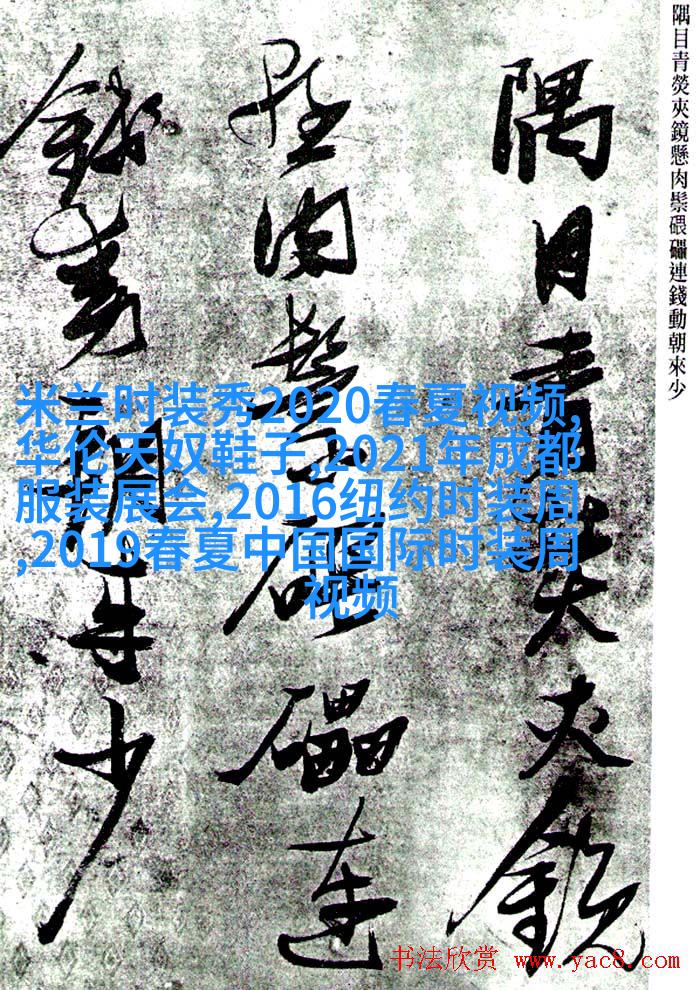 隅目青熒夾鏡懸肉鬃碨礧連錢動朝來少
隅目青熒夾鏡
懸肉鬃碨礧連
錢動朝來少
米兰时装秀2020春夏视频,
华伦天奴鞋子,2021年成都
服装展会,2016纽约时装周
,2019春夏中国国际时装周
视频
书法欣赏 www.yac8.com